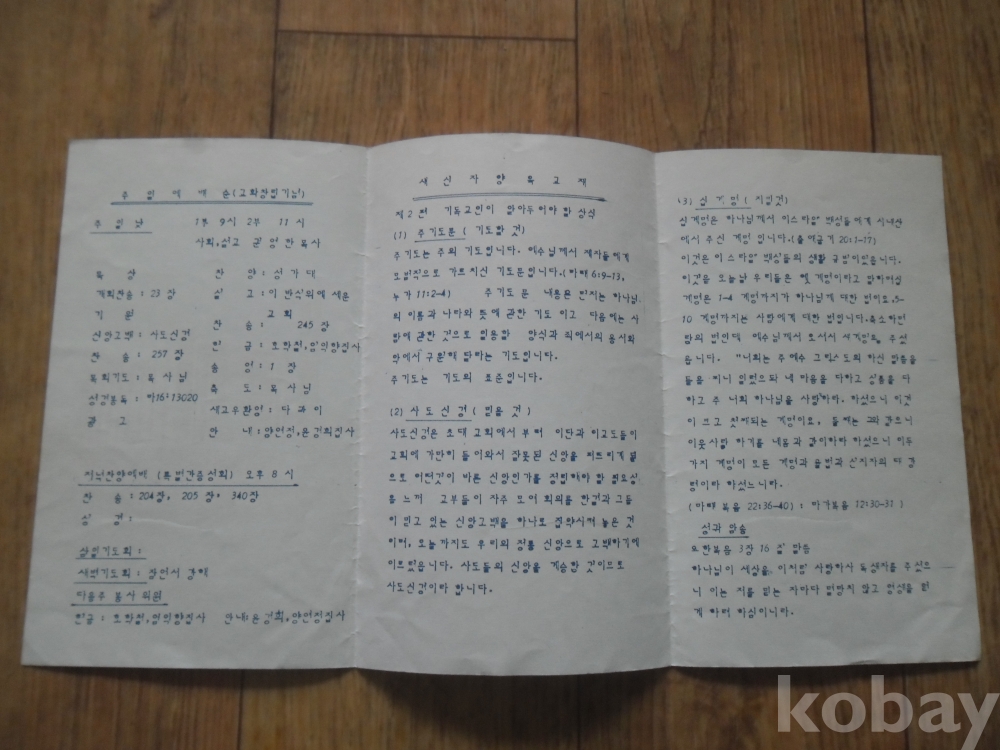 주일예배순(교회창립기념)
주일낮 1부 9시 2부 11시
사회,설교
묵상
개회찬송 : 23 장
기원
신앙고백 : 사도신경
찬송 : 257 장
목회기도 : 목사님
성경봉독 : 마16:13020
광고
찬양 : 성가대
설교 : 이 반석위에 세운
교회
찬송 : 245 장
헌금 :
송영 : 1 장
축도 : 목사님
새교우환영 : 다같이
안내 :
저녁찬양예배 (특별간증성회) 오후 8시
찬송 : 204장, 205장, 340장
성경 :
삼일기도회 :
새벽기도회 : 잠언서 강해
다음주 봉사 위원
헌금 : 안내:
새신자양육교재
제2편 기독교인이 알아두어야 할 상식
(1) 주기도문 (기도할 것)
주기도는 주의 기도입니다. 예수님께서 제자들에게
모범적으로 가르치신 기도문입니다.(마태 6:9-13,
누가 11:2-4) 주기도문 내용은 먼저는 하나님
의 이름과 나라와 뜻에 관한 기도 이고 다음에는 사
람에 관한 것으로 일용할 양식과 죄에서의 용서와
악에서 구원해 달라는 기도입니다.
주기도는 기도의 표준입니다.
(2) 사도신경 (믿을 것)
사도신경은 초대 교회에서 부터 이단과 이교도들이
교회에 가만히 들어와서 잘못된 신앙을 퍼트리게 됨
으로 어떤것이 바른 신앙인가를 정립해야 할 필요성
을 느껴 교부들이 자주 모여 회의를 한결과 그들
이 믿고 있는 신앙고백을 하나로 집약시켜 놓은 것
이며, 오늘 까지도 우리의 정통 신앙으로 고백하기에
이르렀읍니다. 사도들의 신앙을 계승한 것이므로
사도신경이라 합니다.
(3) 십계명 (지킬것)
십계명은 하나님께서 이스라엘 백성들에게 시내산
에서 주신 계명입니다.(출애굽기 20:1-17)
이것은 이스라엘 백성들의 생활 규범이었읍니다.
이것을 오늘날 우리들은 옛 계명이라고 말하며십
계명은 1-4 계명까지가 하나님께 대한 법이요,5-
10 계명까지는 사람에게 대한 법입니다.축소하면
사랑의 법인데 예수님께서 오셔서 새계명을 주셨
읍니다. "너희는 주 예수 그리스도의 하신 말씀을
들음 이니 일렀으되 네 마음을 다하고 성품을 다
하고 주 너희 하나님을 사랑하라. 하셨으니 이것
이 크고 첫째되는 계명이요, 둘째는 그와 같으니
이웃사랑 하기를 내몸과 같이하라 하셨으니 이두
가지 계명이 모든 계명과 율법과 선지자의 대 강
령이라 하셨느니라.
(마태 복음 22:36-40) : 마가복음 12:30-31)
성과 암송
요한복음 3장 16 절 말씀
하나님이 세상을 이처럼 사랑하사 독생자를 주셨으
니 이는 저를 믿는 자마다 멸망치 않고 영생을 얻
게 하려 하심이니라.
kobay